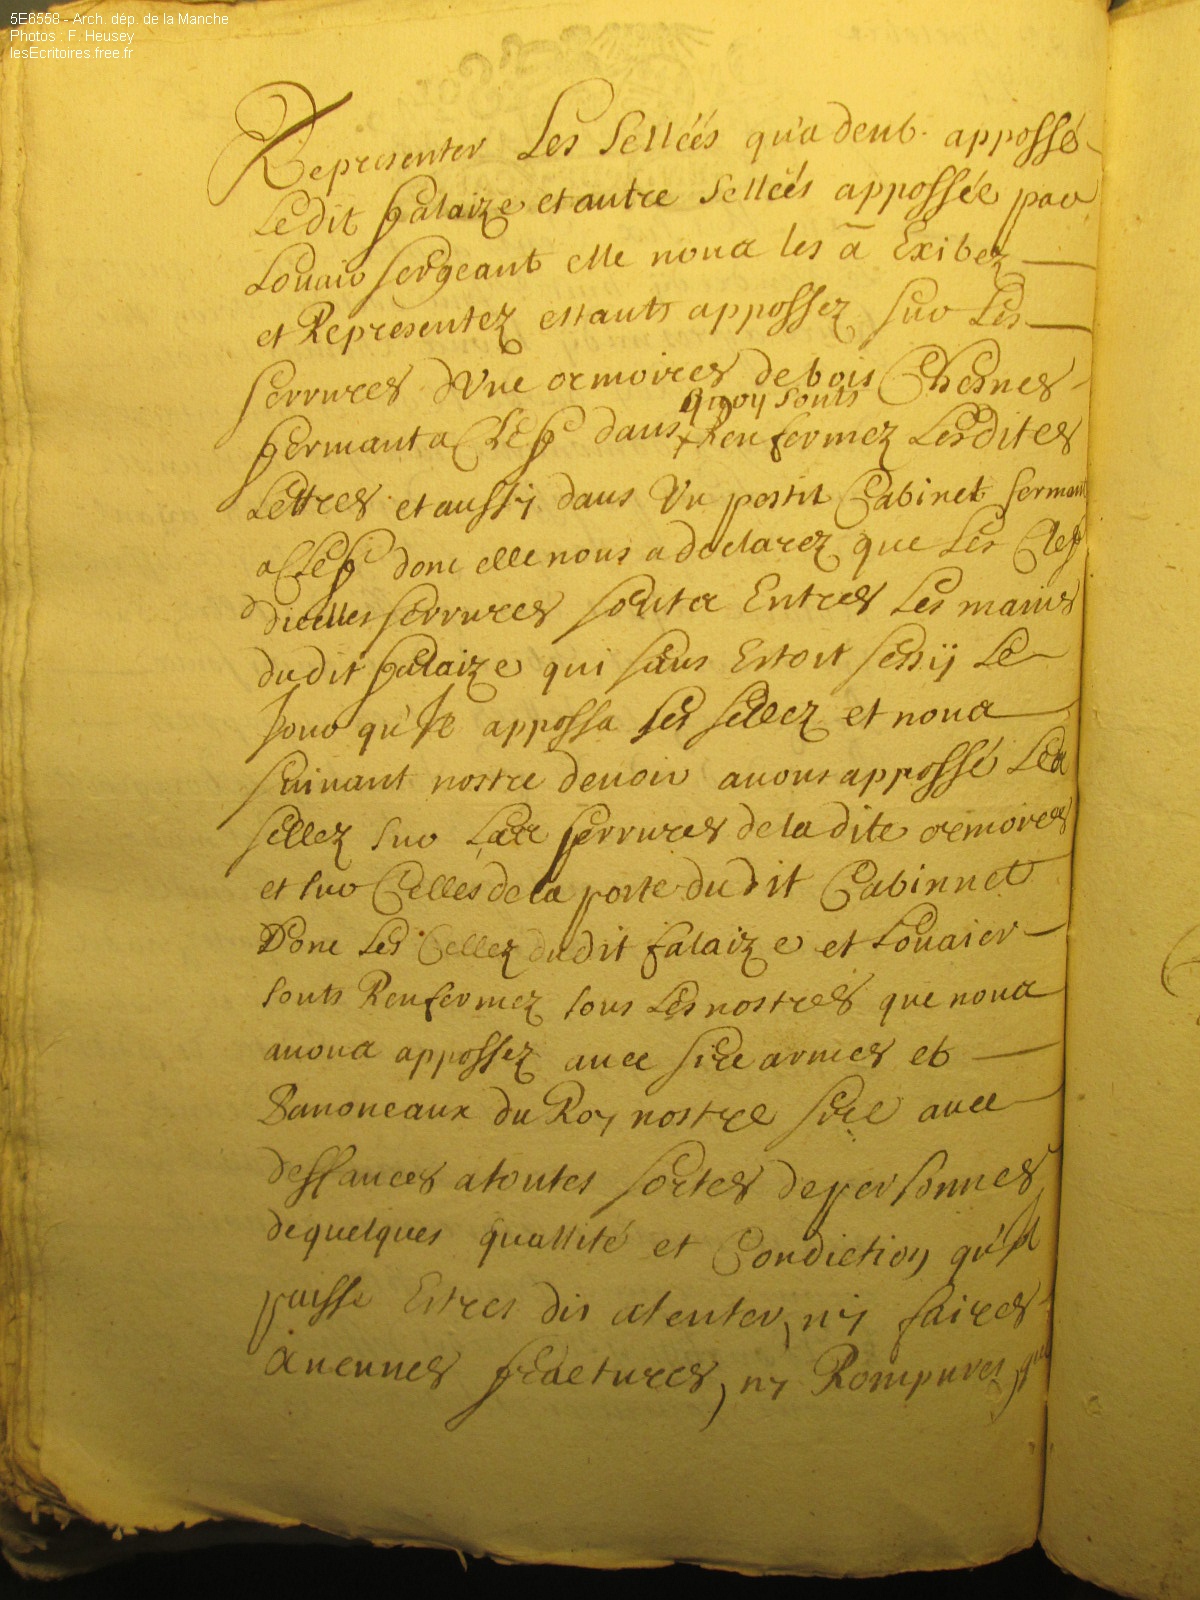 5E6558 - Arch. dép. de la Manche
Photos : F. Heusey
lesEcritoires.free.fr
Representer Les Sellées qu'a deub appossé
Ledit falaize et autre sellées apposséé par
Louair sergeant elle nous les à Exibez
et Representez estants appossez sur Les
serrures d'Une ormoires de bois Chesnes
quoy sonts
fermant a Clef dans Renfermez Lesdites
Lettres et aussy dans Un pestit Cabinet fermant
a Clef donc elle nous a declarez que Les Clef
dicelles serrures sont Entres Les mains
dudit falaize qui sans Estoit sessÿ Le
jour qu'Il apposa ses sellez et nous
suivant nostre devoir avons apposé Les
sellez sur serrures de la dite ormoires
et sur Celles de la porte dudit Cabinnet
Donc Les Cellez dudit falaize et Louaier
sonts Renfermez sous Les nostres que nous
avons appossez avec sire armes et
Panonceaux du Roy nostre sire avec
deffances a toutes sortes de personnes
de quelques quallité et Condiction qu'Il
puisse Estres dis atenter, ny faires
Aucunnes fractures, ny Rompures,